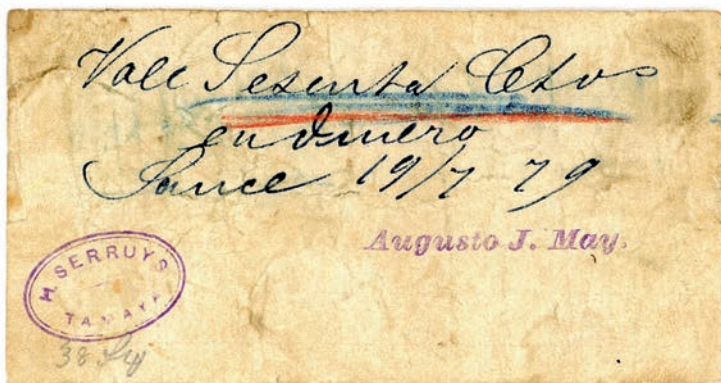 Vale Sesenta Ctvos
en dinero
Sauce 19/7 79
Augusto J. May.
H. SERRUYS
TAMAYA
38